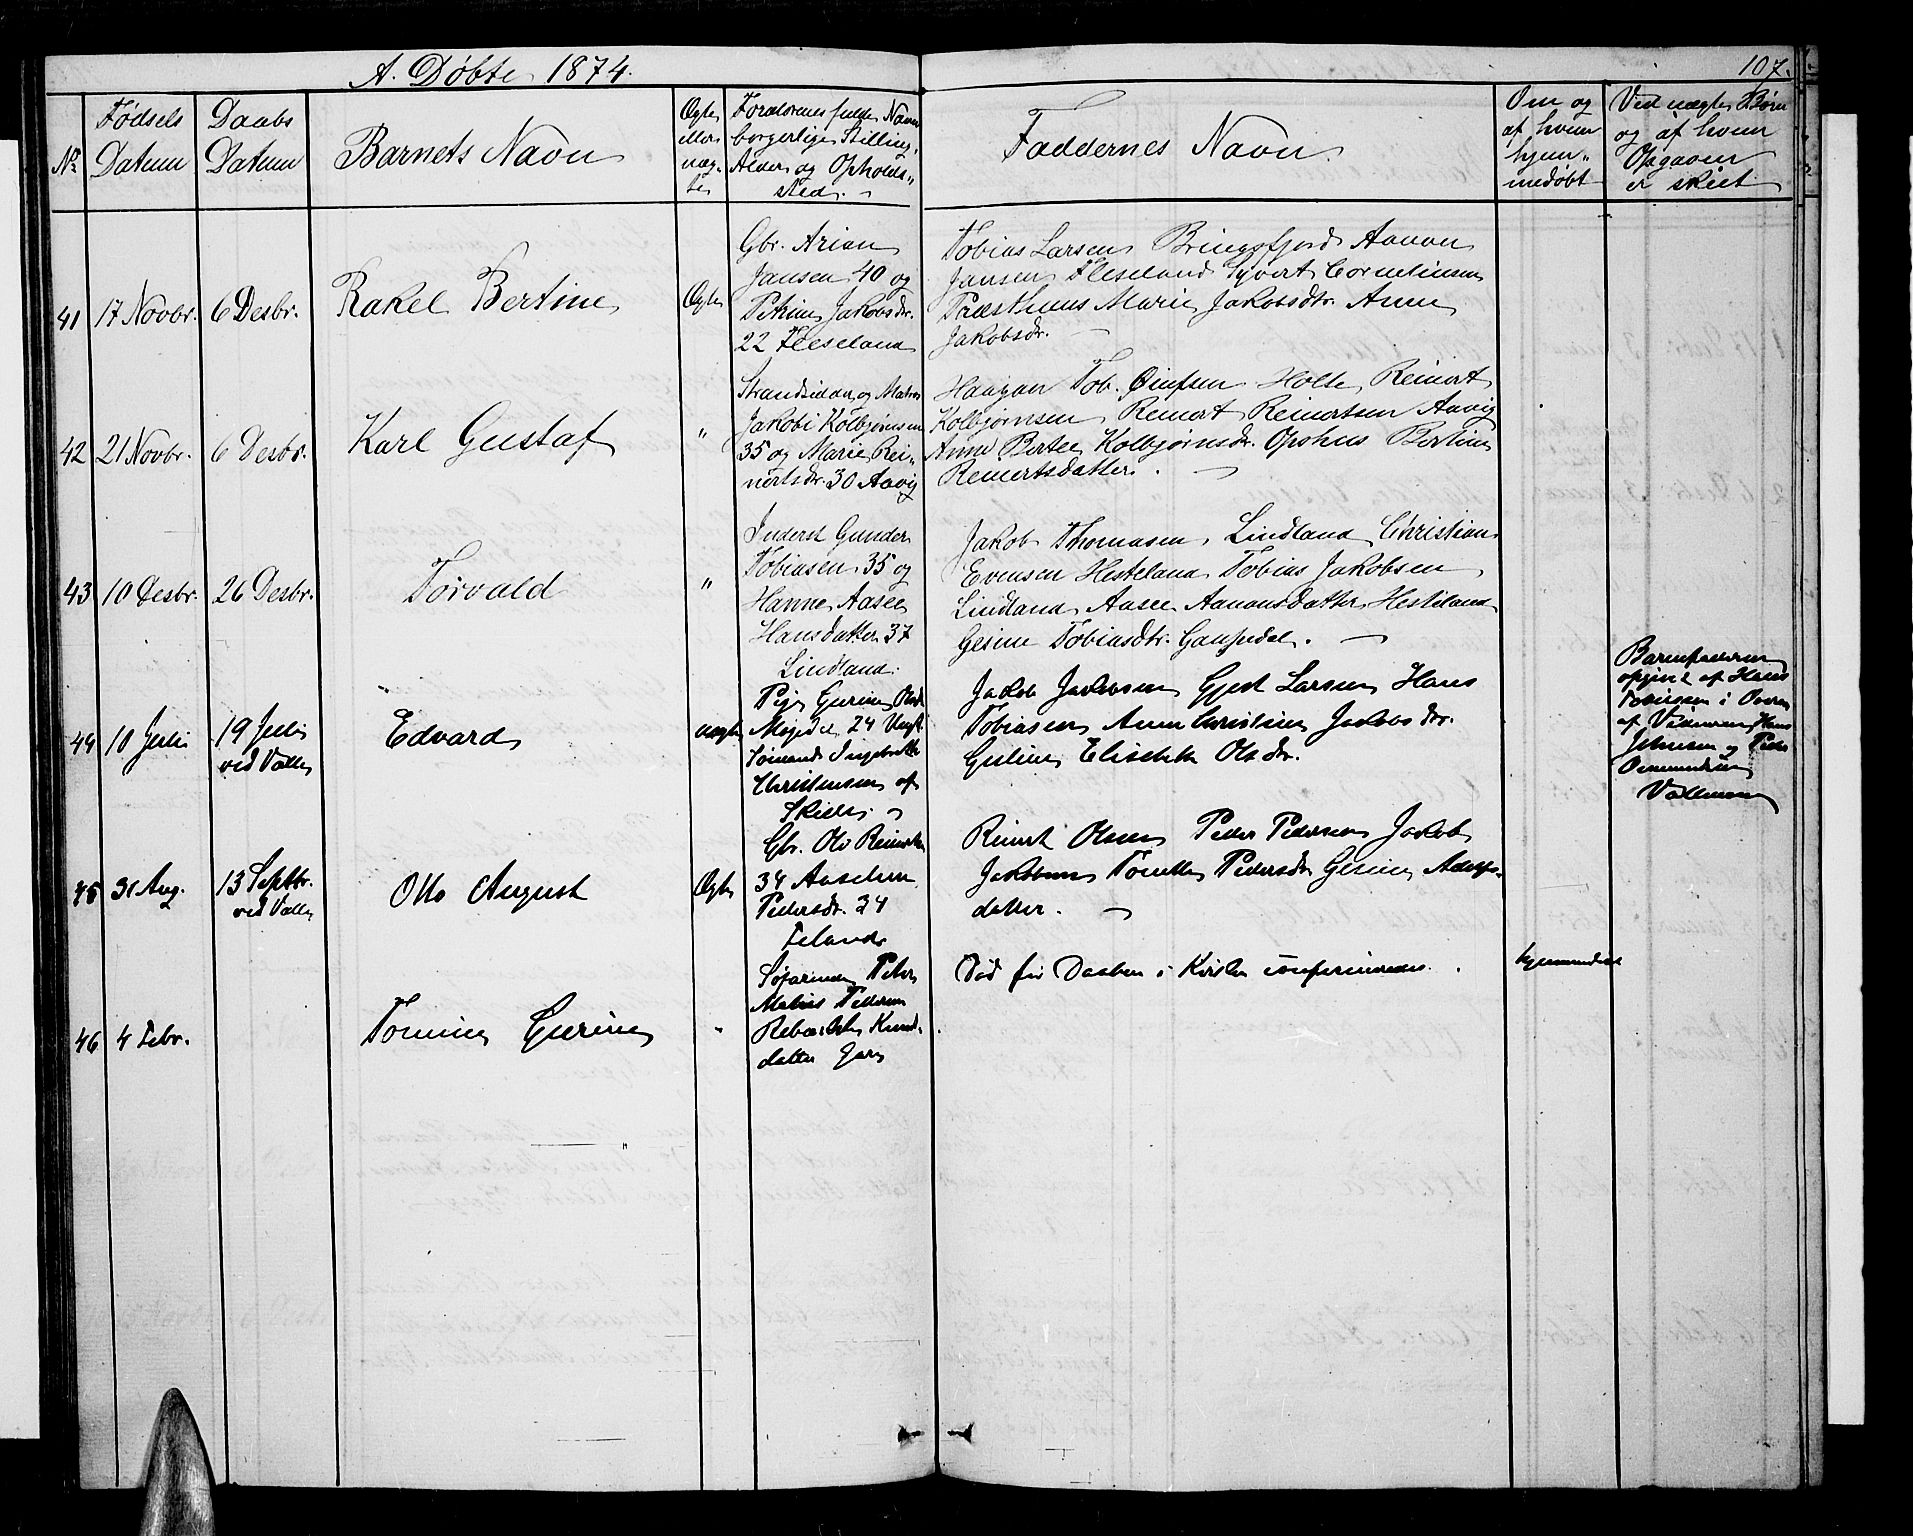 A. Døbte 1874.
107.
No.
Fødsels Datum
Daabs Datum
Barnets Navn
Ægte eller uægte
Forældrenes fulde Navn
borgerlige Stilling,
Alder og Opholds-
sted.
Faddernes Navn.
Om og
af hvem
hjem-
medøbt
Ved uægte Børn
og af hvem
Opgaven
er skeet
41
17 Novbr.
6 Desbr.
Rakel Bertine
Ægte
Gbr. Arian
Jansen 40 og
Petrine Jakobsdr.
22 Fleseland
Tobias Larsen Bringsfjord Aanon
Jansen Fleseland Syvert Corneliusen
Præsthuus Marie Jakobsdtr. Anne
Jakobsdr.
42
21 Novbr.
6 Desbr.
Karl Gustaf
"
Strandsidder og Matros
Jakob Kolbjørnsen
35 og Marie Rei-
nertsdr. 30 Aavig
Haagan Tob. Holte Reinert
Kolbjørnsen Reinert Reinertsen Aavig
Anne Bertee Kolbjørnsdr. Opshus Bertine
Reinertsdatter.
43
10 Desbr.
26 Desbr.
Torvald
"
Inderst Gunder
Tobiasen 35 og
Hanne Aasee
Hansdatter 37
Lindland.
Jakob Thomasen Lindland Christian
Evensen Hesteland Tobias Jakobsen
Lindland Aasee Aanonsdatter Hesteland
Gesine Tobiasdtr.
44
10 Juli
19 Juli
ved Valle
Edvard
uægte
Pige Gurine
24 Ungk.
Sømand
Christensen af
Jakob Jakobsen Gjert Larsen Hans
Tobiasen Anne Christine Jakobsdr.
Guline Elisebet Olsdr.
Barnefaderen
opgivet af Hans
Tobiasen i
af Vidnerne Hans
Johnsen og Peder
45
31 Aug.
13 Septbr.
ved Valle
Otto August
Ægte
Gbr. Ole
34
Pedersdr. 34
Reinert Olsen Peder Pedersen Jakob
Jakobsen Tonette Pedersdr Gesine
datter.
46
4 Febr.
Tomine Gurine
"
Peter
Mathias
datter
Død før Daaben i Kirken